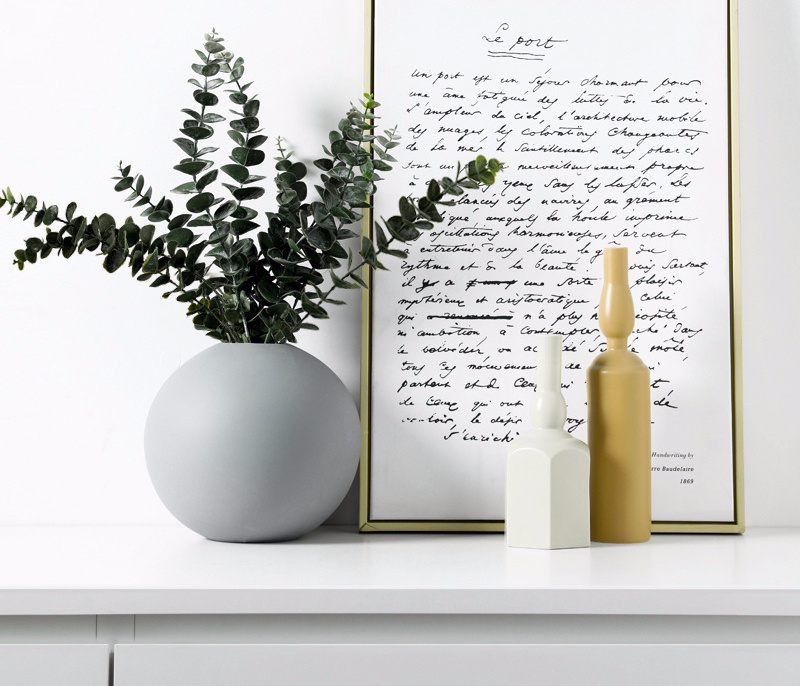 Le port
un port est un séjour charmant pour
une âme fatiguée des luttes de la vie.
L'ampleur du ciel, l'architecture mobile
des nuages, les colorations changeantes
de la mer, le scintillement des phares
sont un merveilleusement propre
à yeux sans les lasser. Les
élancées des navires, au gréement
ique, auxquels la houle imprime
oscillations harmonieuses, servent
à entretenir dans l'âme le goût du
rythme et de la beauté. puis surtout,
il y a une sorte plaisir
mystérieux et aristocratique celui
qui n'a plus iosité
ni ambition, à contempler couché dans
le belvédère ou accoudé sur le môle
tous ces mouvements de
partent et de ceux qui t
de ceux qui ont de
vouloir, le désir voy
s'enrichir
Handwriting by
rre Baudelaire
1869